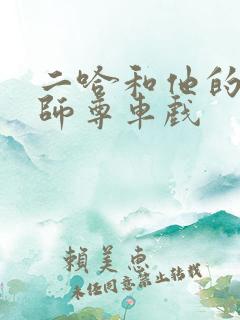 二哈和他的
師尊車戲
賴美惠
未经同意禁止转载